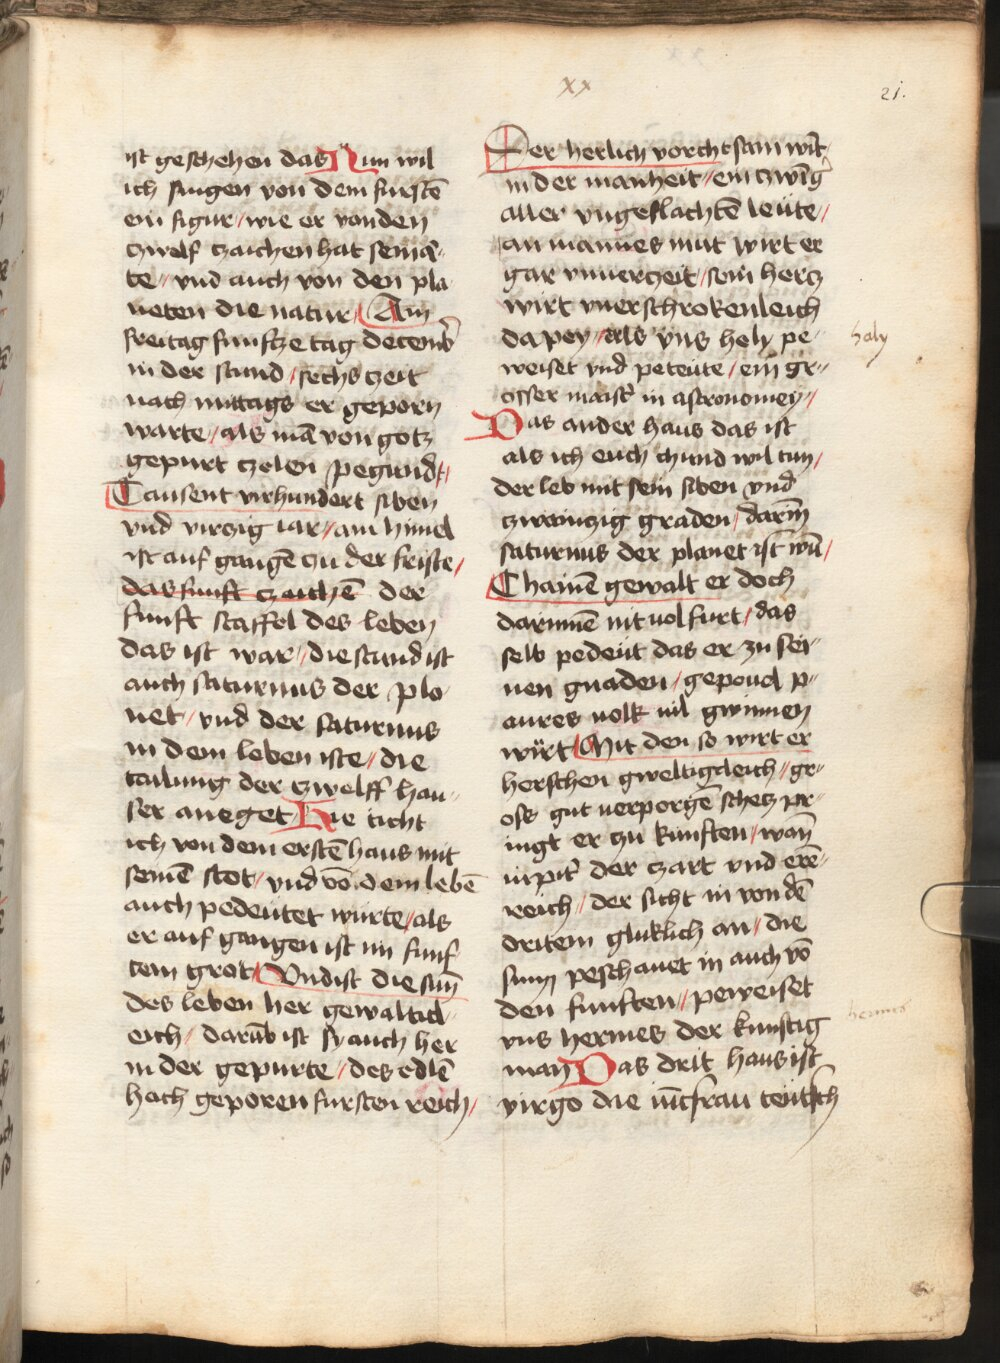 xx
21.
ist geschehen das Nun wil
ich singen von dem furstē
ein figur / wie er von den
czwelf czaichen hat sein ā-
te // vnd auch von den pla
neten die natur / Am
freitag funfcze tag decemb̄
in der stund / sechs czeit
nach mittags er geporn
warte / als mā von gotz
gepurt czelen pegundt /
Tausent virhundert siben
vnd virczig iar / am himel
ist auf gangē czu der friste /
das funft czaichē der
funft staffel des leben
das ist war / die stund ist
auch saturnus der pla-
net / vnd der saturnus
in dem leben iste / die
tailung der czwelff hau-
ser aneget Hie ticht
ich von dem erstē haus mit
seinē stot / vnd vō dem lebē
auch pedeutet wurte / als
er auf gangen ist im funf
tem grot / Vnd ist die sun̄
des leben her gewalticl-
eich / darūb ist sy auch her
in der gepurte / des edlē
hoch geporen fursten reich /
Der herlich vorchtsam wirt
in der manheit / ein czwinḡ
aller vngeslachtē leute //
an mannes mut wirt er
gar vnuerczeit / sein hercz
wirt vnerschrokenleich
da pey / als vns haly pe-
weiset vnd peteute / ein gr-
osser maistr̄ in astronomey //
Das ander haus das ist
als ich euch chund wil tun /
der leb mit sein siben vnd
czwainczig graden / darin̄
saturnus der planet ist wū /
Chainē gewalt er doch
darinnē nit uol furt / das
selb pedeut das er zu sei-
nen gnaden / gepoud p-
aures uolk uil gwinnen
wirt / Mit den so wirt er
herschen gweltigcleich / gr-
oss gut uerporgē schecz pr-
ingt er czu kunften / wan̄
iupitr̄ der czart vnd erē-
reich / der sicht in von dē
dritem gluklich an / die
sunn peschauet in auch vō
den funften / peweiset
vns hermes der kunstig
man Das drit haus ist
virgo die iūcfrau teutsch
haly
hermes